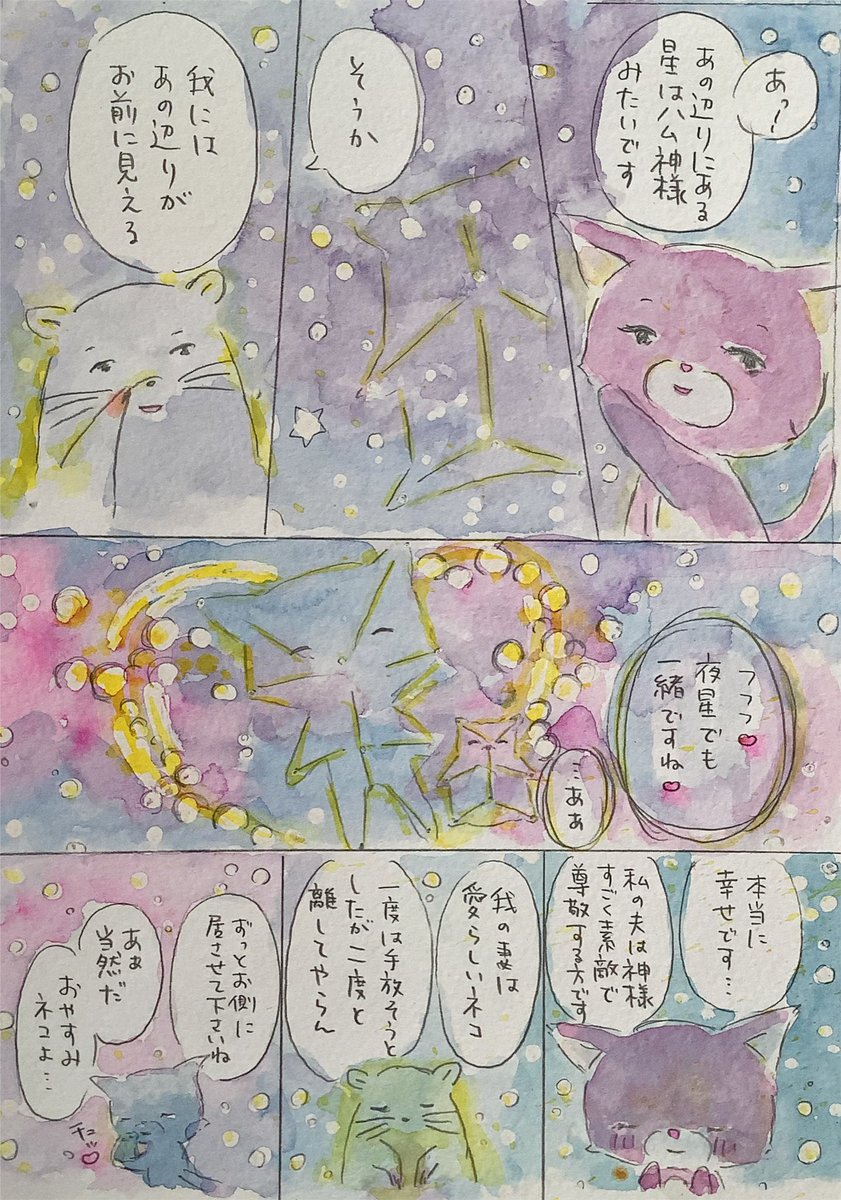 あっ！
あの辺りにある
星はハム神様
みたいです
そうか
我には
あの辺りが
お前に見える
フフフ♥
夜星でも
一緒ですね♥
…ああ
本当に
幸せです…
私の夫は神様
すごく素敵で
尊敬する方です
我の妻は
愛らしいネコ
一度は手放そうと
したが二度と
離してやらん
ずっとお側に
居させて下さいね
あぁ
当然だ
おやすみ
ネコよ…
チュッ♥